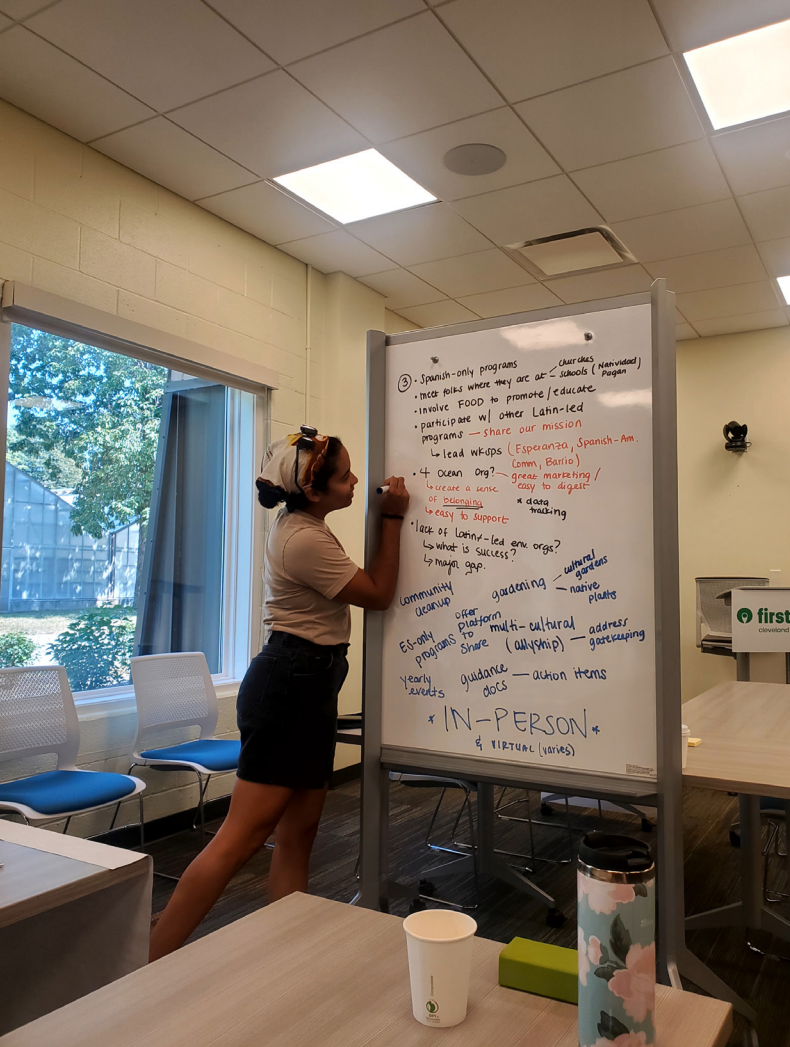 ③ • Spanish-only programs
• meet folks where they are at - churches
- schools (Natividad Pagan
• involve FOOD to promote/educate
• participate w/ other Latin-led
programs — share our mission
↳ lead wkshps (Esperanza, Spanish-Am.
Comm, Barrio)
• 4 Ocean Org? — great marketing/
easy to digest
↳ create a sense
of belonging
* data
tracking
↳ easy to support
• lack of Latin-led env. orgs?
↳ what is success?
↳ major gap.
community
cleanup
gardening - cultural
gardens
- native
plants
EJ-only
programs
offer
platform
to
share
multi-cultural
(allyship) — address
gatekeeping
yearly
events
guidance
docs — action items
* IN-PERSON *
& VIRTUAL (varies)
first
cleveland